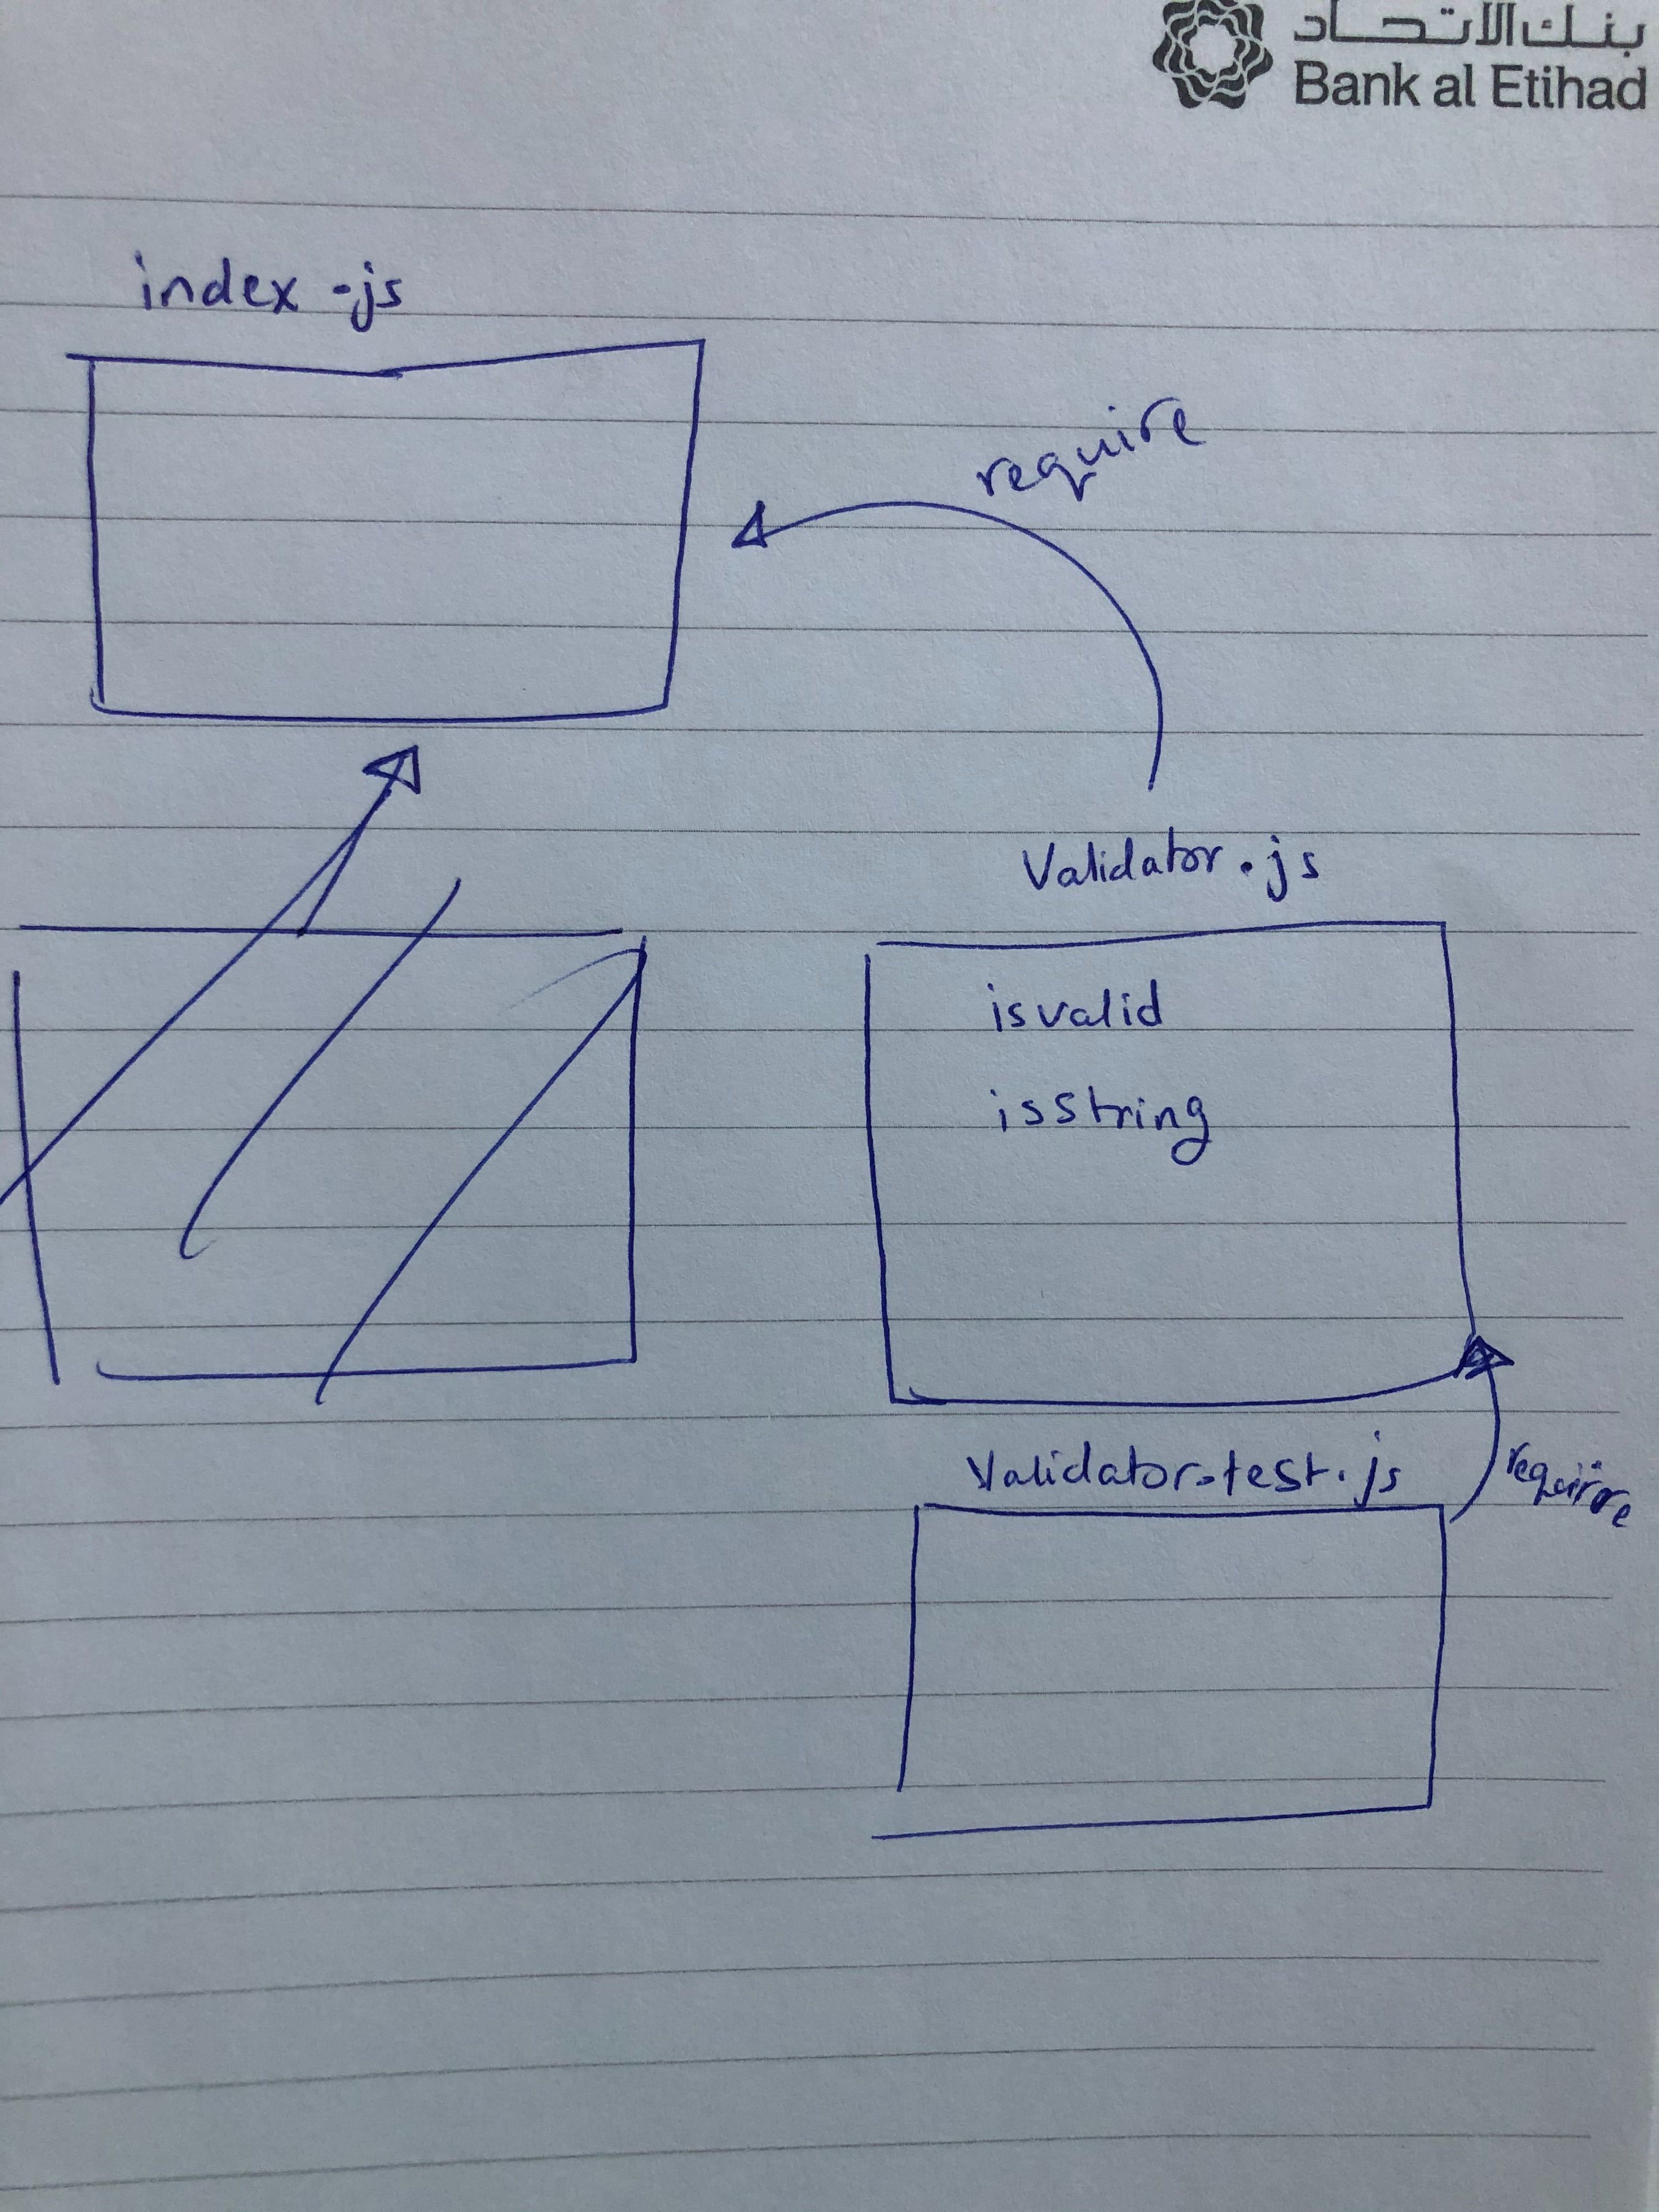 بنك الاتحاد
Bank al Etihad
index.js
require
Validator.js
isvalid
isString
Validator.test.js
require